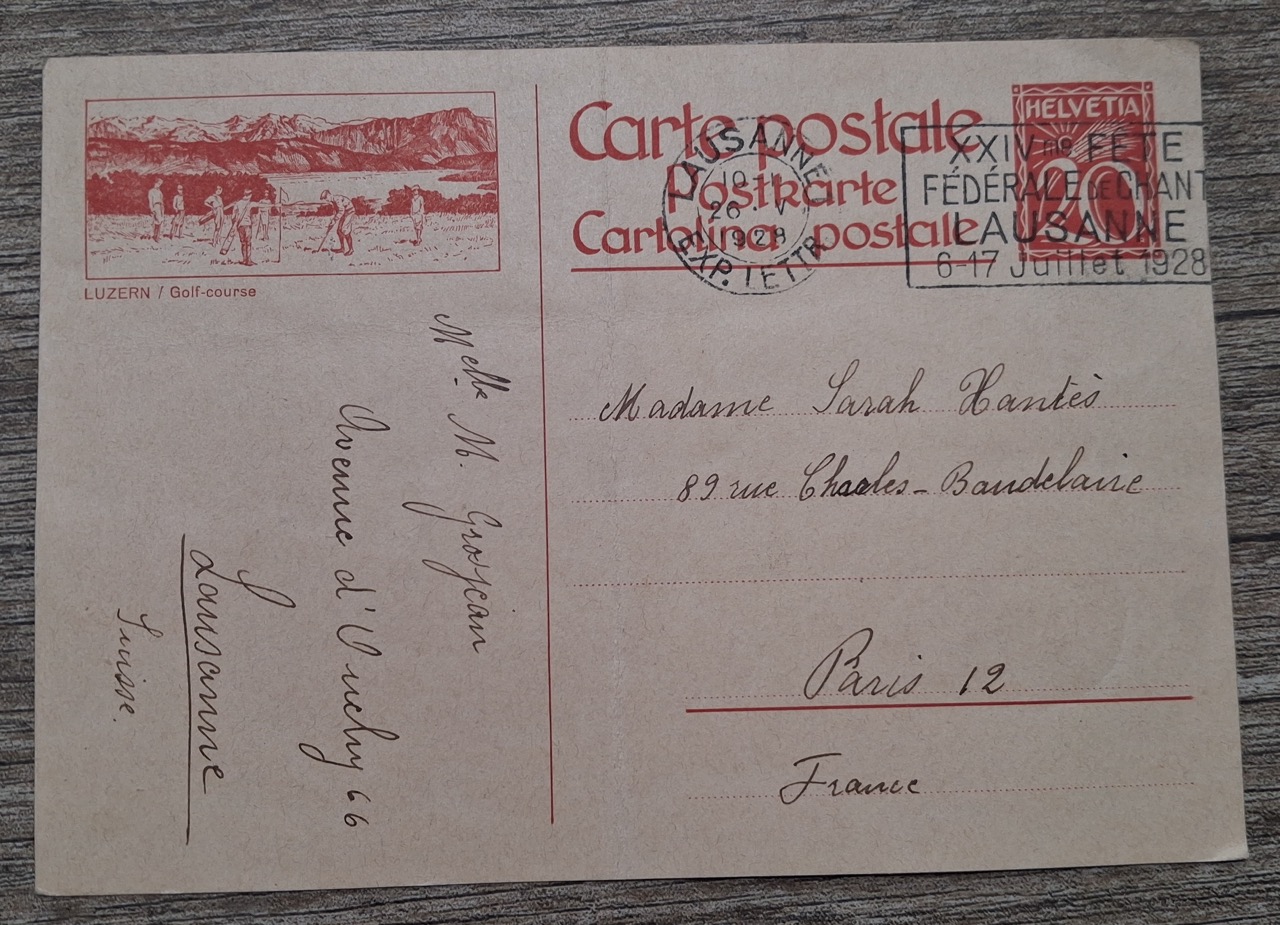 LUZERN / Golf-course
Melle M. Grosjean
Avenue d'Ouchy 66
Lausanne
Suisse.
Carte postale
Postkarte
Cartolina postale
LAUSANNE 1
26. V
1928
EXP. LETTR.
HELVETIA
20
XXIVme FÊTE
FÉDÉRALE DE CHANT
LAUSANNE
6-17 Juillet 1928
Madame Sarah Hantès
89 rue Charles-Baudelaire
Paris 12
France